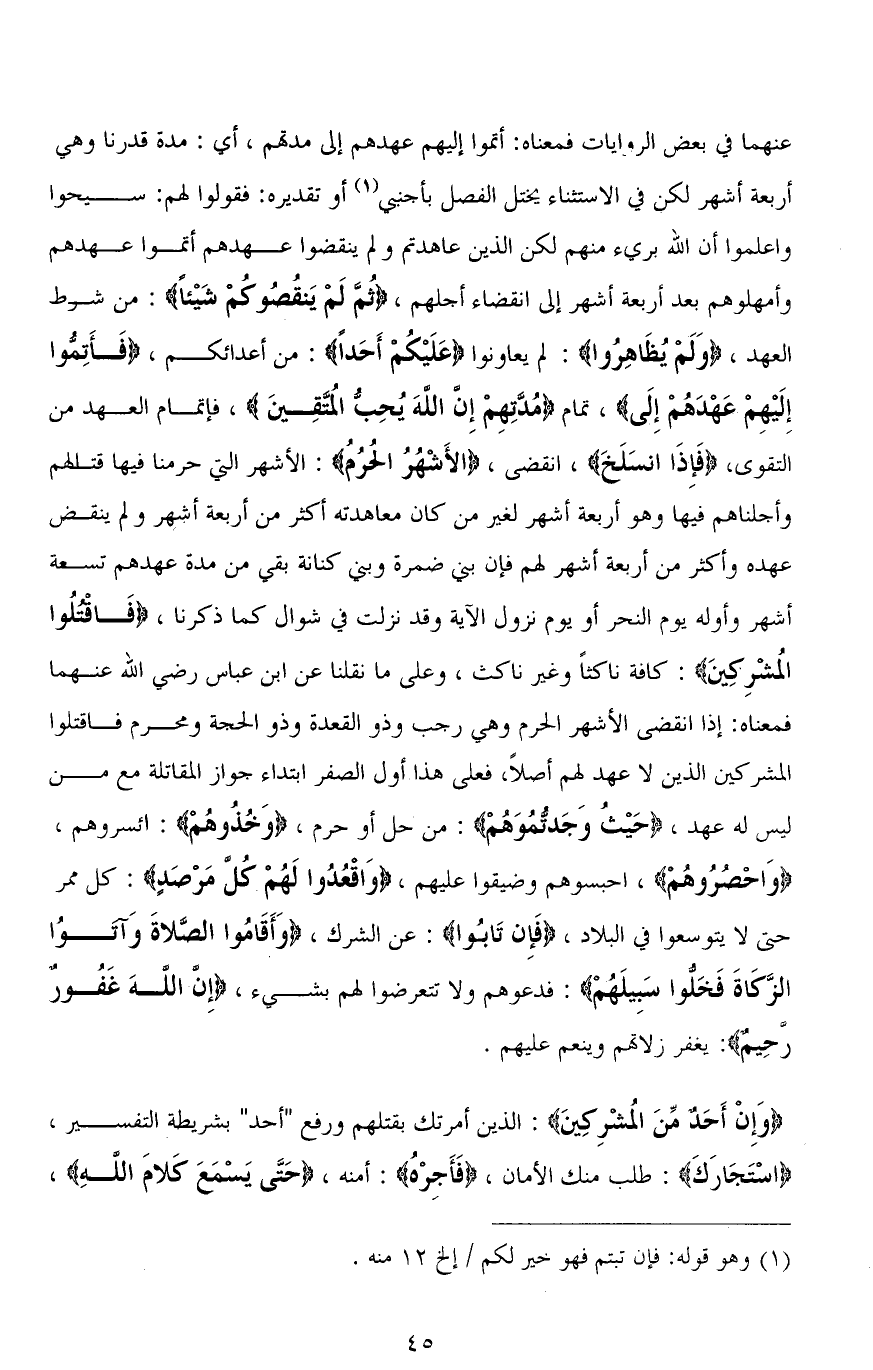 عنهما في بعض الروايات فمعناه: أتموا إليهم عهدهم إلى مدتهم ، أي : مدة قدرنا وهي
أربعة أشهر لكن في الاستثناء يختل الفصل بأجنبي(١) أو تقديره: فقولوا لهم: سيحوا
واعلموا أن الله بريء منهم لكن الذين عاهدتم و لم ينقضوا عهدهم أتموا عهدهم
وأمهلوهم بعد أربعة أشهر إلى انقضاء أجلهم ، ﴿ثُمَّ لَمْ يَنقُصُوكُمْ شَيْئاً﴾ : من شرط
العهد ، ﴿وَلَمْ يُظَاهِرُوا﴾ : لم يعاونوا ﴿عَلَيْكُمْ أَحَداً﴾ : من أعدائكم ، ﴿فَأَتِمُّوا
إِلَيْهِمْ عَهْدَهُمْ إِلَى﴾ ، تمام ﴿مُدَّتِهِمْ إِنَّ اللَّهَ يُحِبُّ الْمُتَّقِينَ ﴾ ، فإتمام العهد من
التقوى، ﴿فَإِذَا انسَلَخَ﴾ ، انقضى ، ﴿الأَشْهُرُ الْحُرُمُ﴾ : الأشهر التي حرمنا فيها قتلهم
وأجلناهم فيها وهو أربعة أشهر لغير من كان معاهدته أكثر من أربعة أشهر و لم ينقض
عهده وأكثر من أربعة أشهر لهم فإن بني ضمرة وبني كنانة بقي من مدة عهدهم تسعة
أشهر وأوله يوم النحر أو يوم نزول الآية وقد نزلت في شوال كما ذكرنا ، ﴿فَاقْتُلُوا
الْمُشْرِكِينَ﴾ : كافة ناكثاً وغير ناكث ، وعلى ما نقلنا عن ابن عباس رضي الله عنهما
فمعناه: إذا انقضى الأشهر الحرم وهي رجب وذو القعدة وذو الحجة ومحرم فاقتلوا
المشركين الذين لا عهد لهم أصلاً، فعلى هذا أول الصفر ابتداء جواز المقاتلة مع من
ليس له عهد ، ﴿حَيْثُ وَجَدتُّمُوَهُمْ﴾ : من حل أو حرم ، ﴿وَخُذُوهُمْ﴾ : ائسروهم ،
﴿وَاحْصُرُوهُمْ﴾ ، احبسوهم وضيقوا عليهم ، ﴿وَاقْعُدُوا لَهُمْ كُلَّ مَرْصَدٍ﴾ : كل ممر
حتى لا يتوسعوا في البلاد ، ﴿فَإِن تَابُوا﴾ : عن الشرك ، ﴿وَأَقَامُوا الصَّلاةَ وَآتَوُا
الزَّكَاةَ فَخَلُّوا سَبِيلَهُمْ﴾ : فدعوهم ولا تتعرضوا لهم بشيء ، ﴿إِنَّ اللَّهَ غَفُورٌ
رَّحِيمٌ﴾: يغفر زلاتهم وينعم عليهم .
﴿وَإِنْ أَحَدٌ مِّنَ الْمُشْرِكِينَ﴾ : الذين أمرتك بقتلهم ورفع "أحد" بشريطة التفسير ،
﴿اسْتَجَارَكَ﴾ : طلب منك الأمان ، ﴿فَأَجِرْهُ﴾ : أمنه ، ﴿حَتَّى يَسْمَعَ كَلامَ اللَّهِ﴾ ،
(١) وهو قوله: فإن تبتم فهو خير لكم / إلخ ١٢ منه .
٤٥